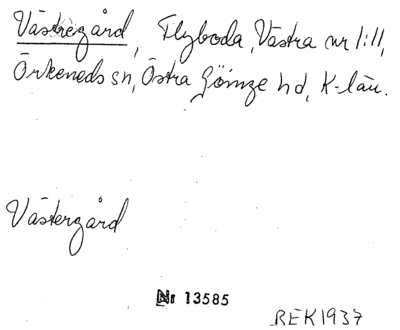 Västregård, Flyboda, Västra nr 1:11,
Örkeneds sn, Östra Göinge hd, K-län.
Västergård
Nr 13585
REK1937